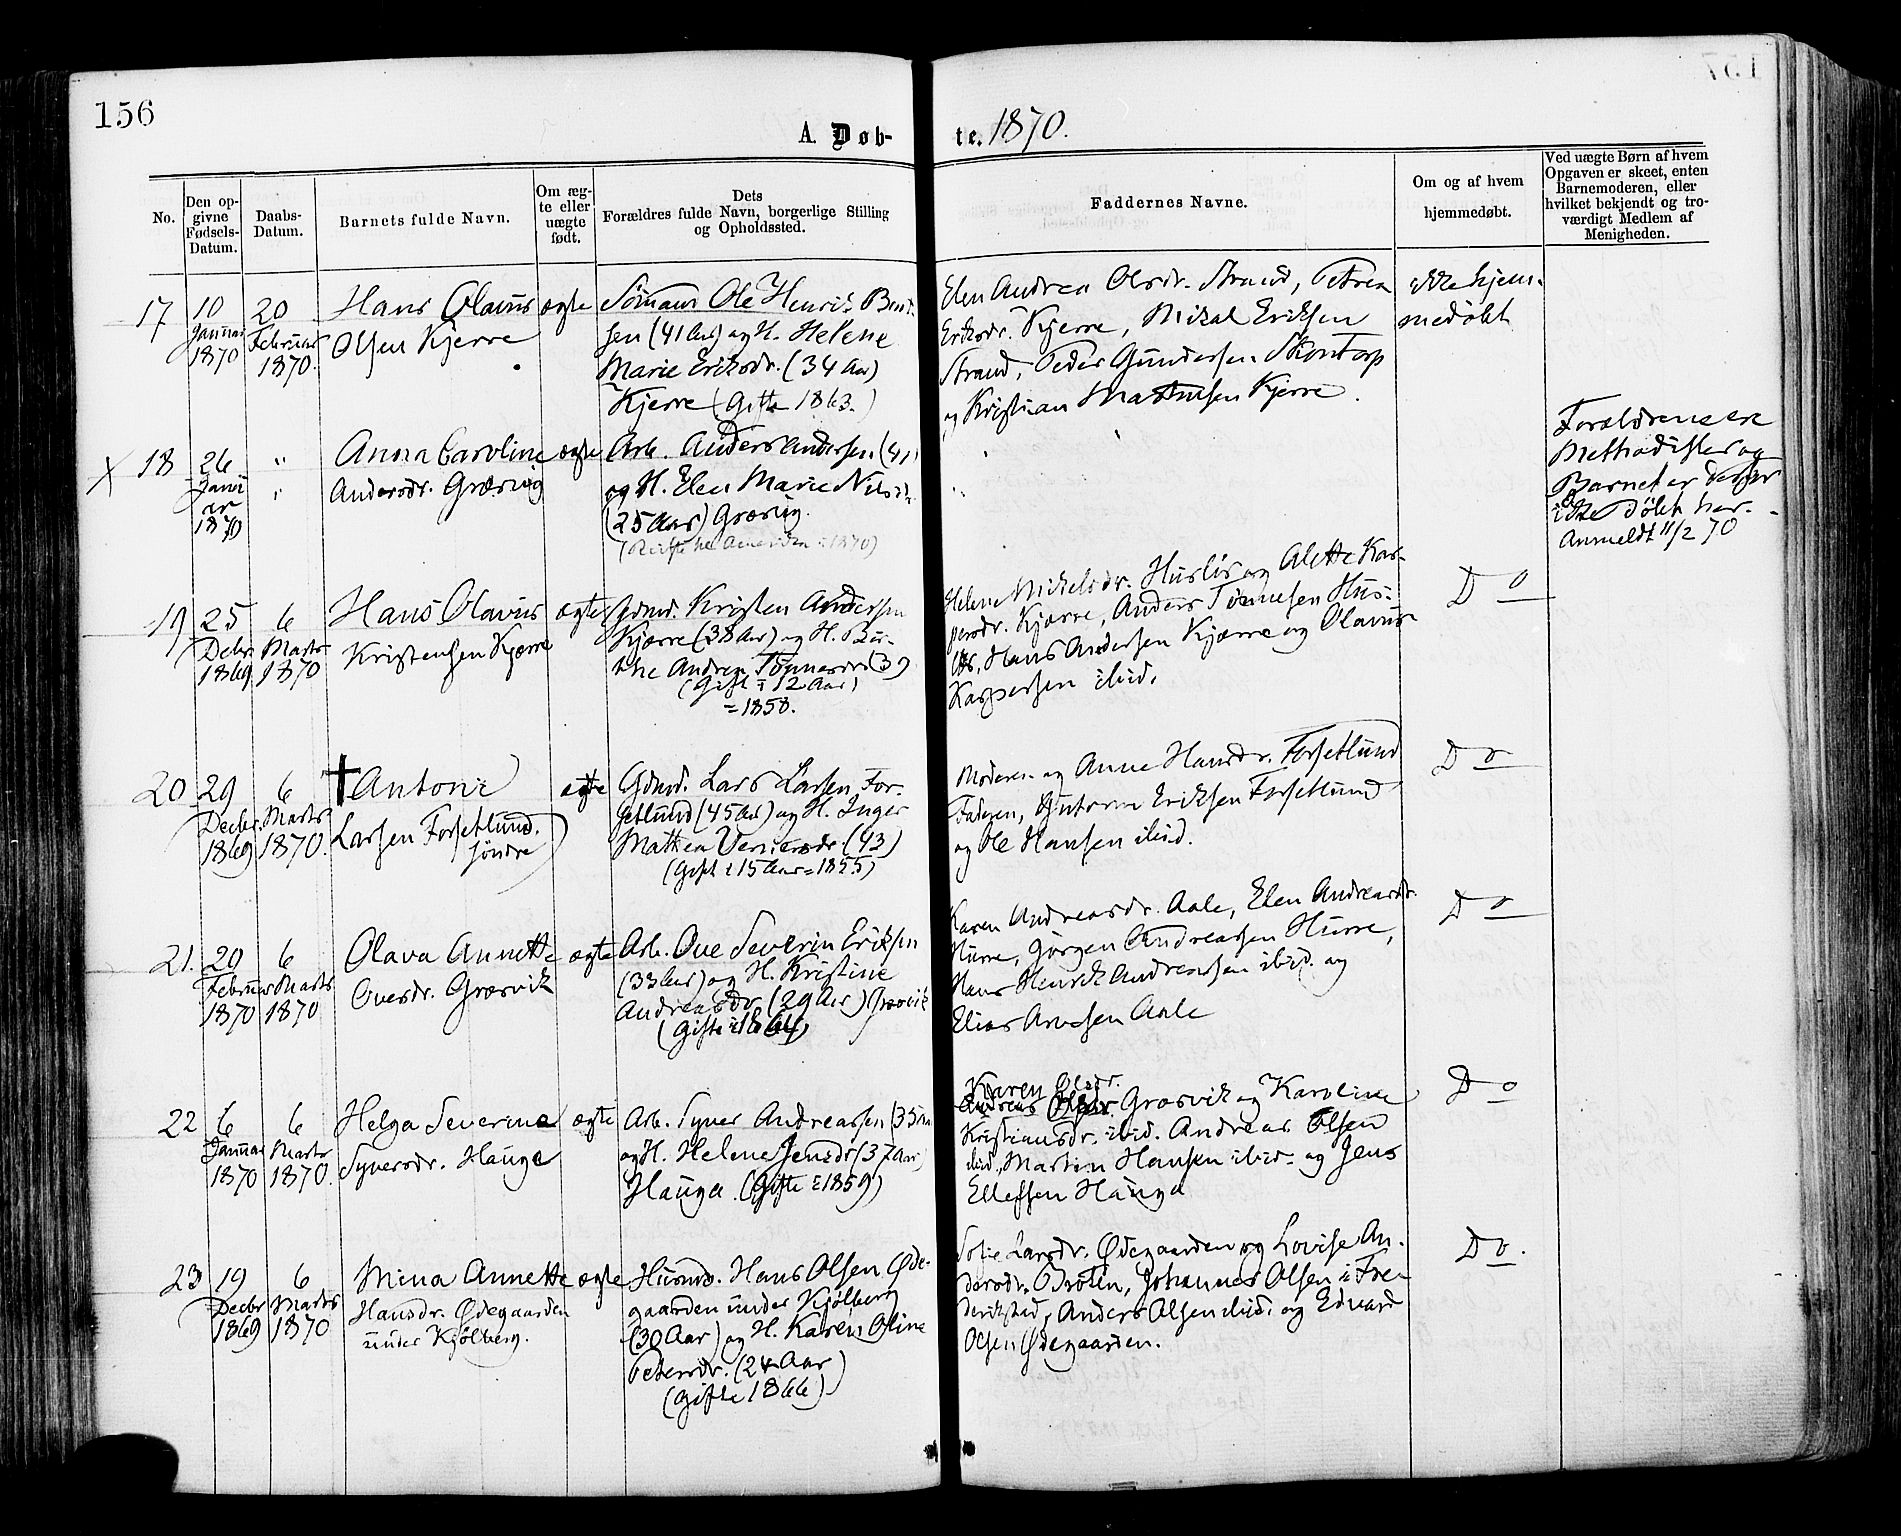 156
A. Døb-
te. 1870.
No.
Den op-
givne
Fødsels-
Datum.
Daabs-
Datum.
Barnets fulde Navn.
Om æg-
te eller
uægte
født.
Dets
Forældres fulde Navn, borgerlige Stilling
og Opholdssted.
Faddernes Navne.
Om og af hvem
hjemmedøbt.
Ved uægte Børn af hvem
Opgaven er skeet, enten
Barnemoderen, eller
hvilket bekjendt og tro-
værdigt Medlem af
Menigheden.
17
10
Januar
1870
20
Februar
1870.
Hans Olavus
Olsen Kjerre
ægte
Sömand Ole Henrik Bent-
sen (41 Aar) og H. Helene
Marie Eriksdr. (34 Aar)
Kjerre (Gifte 1863.)
Elen Andrea Olsdr. Strand, Petrea
Eriksdr. Kjerre, Mikal Eriksen
Strand, Peder Gundersen Skontorp
og Kristian Mathisen Kjerre.
ikke hjem-
medöbt
X 18
26
Janu
ar
1870
"
"
Anna Caroline
Andersdr. Græsvig
ægte
Arb. Anders Andersen (41)
og H. Elen Marie Nilsdr.
(25 Aar) Græsvig.
(Reiste til Amerika i 1870)
Forældrene ere
Methodister og
Barnet er derfor
ikke döbt her.
Anmeldt 11/2 70
19
25
Decbr
1869
6
Marts
1870
Hans Olavus
Kristensen Kjærre
ægte
Gdmd. Kristen Andersen
Kjærre (38 Aar) og H. Ber-
the Andrea Tönnesdr (39
(Gift i 12 Aar)
= 1858.
Helene Mickelsdr. Huslös og Alette Kas-
persdr. Kjærre, Anders Tönnesen Hus-
lös, Hans Andersen Kjærre og Olavus
Kaspersen ibid.
Do
20
29
Decbr.
1869
6
Marts
1870.
† Antoni
Larsen Forsetlund.
söndre
ægte
Gdmd. Lars Larsen For-
setlund (45 Aar) og H. Inger
Mathea Vernersdr (43)
(Gift i 15 Aar = 1855)
Moderen og Anne Hansdr. Forsetlund
Faderen, Guttorm Eriksen Forsetlund
og Ole Hansen ibid.
Do
21.
20
Februar
1870
6
Marts
1870
Olava Annette
Ovesdr. Græsvik
ægte
Arb. Ove Severin Eriksen
(33 Aar) og H. Kristine
Andreasdr (29 Aar) Græsvik
(Gifte i 1864)
Karen Andreasdr. Aale, Elen Andreasdr.
Hurre, Jörgen Andreassen Hurre,
Hans Henrik Andreassen ibid. og
Elias Arnesen Aale
Do
22
6
Januar
1870
6
Marts
1870.
Helga Severine
Syversdr. Hauge
ægte
Arb. Syver Andreassen (35 Aar
og H. Helene Jensdr (37 Aar)
Hauga. (Gifte i 1859)
Karen Olsdr.
Græsvik og Karoline
Kristiansdr. ibid. Andreas Olsen
ibid., Martin Hansen ibid. og Jens
Ellefsen Hauga
Do
23
19
Decbr
1869
6
Marts
1870
Mina Annette
Hansdr. Ødegaarden
under Kjölberg.
ægte
Husmd. Hans Olsen Øde-
gaarden under Kjölberg
(30 Aar) og H. Karen Oline
Petersdr. (24 Aar)
(Gifte 1866)
Sofie Larsdr. Ødegaarden og Lovise An-
dersdr. Bröten, Johannes Olsen i Fre-
drikstad, Anders Olsen ibid. og Edvard
Olsen Ødegaarden.
Do.